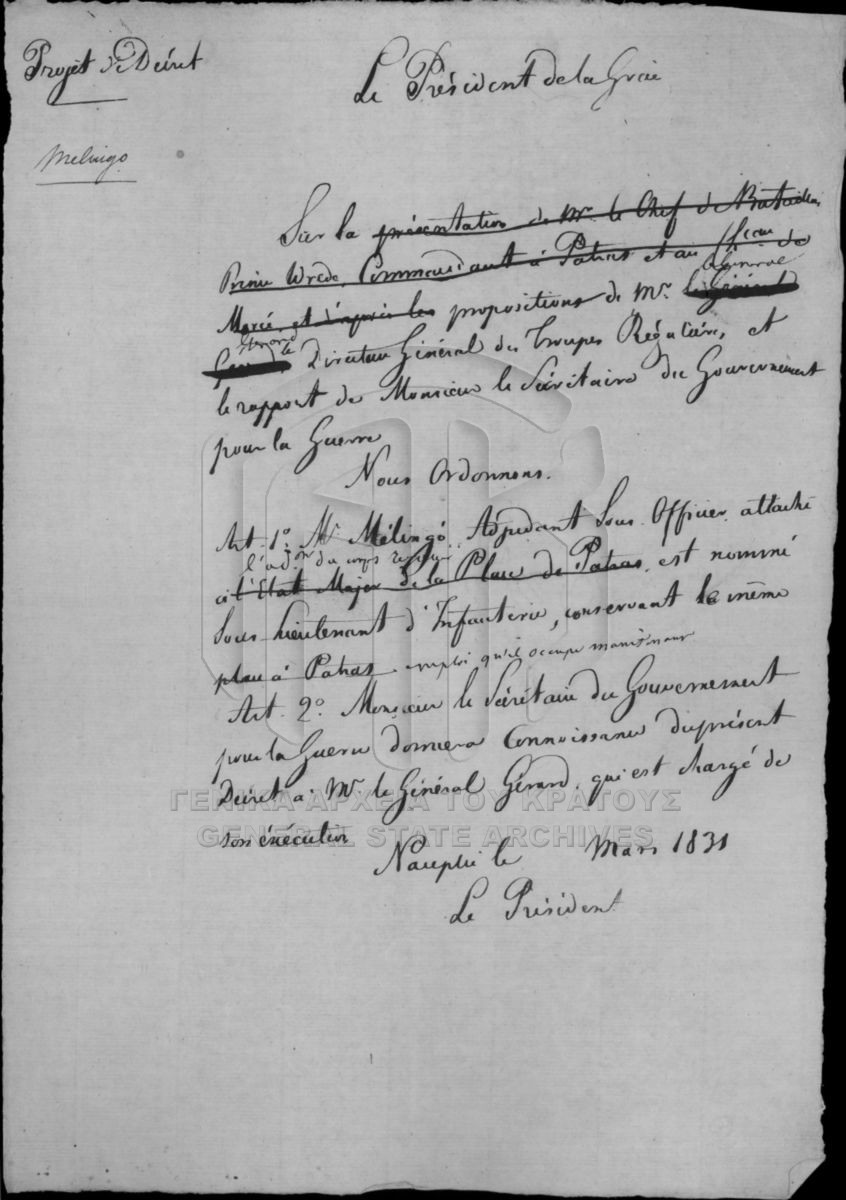 Projet de Décret
Le Président de la Grèce
Melingo
Sur la présentation de Mr. le Chef de Bataillon
Prince Wrede, Commandant à Patras et au
Morée, et d'après les propositions de Mr. le Général
Général
Gérard le Directeur Général des Troupes Régulières, et
le rapport de Monsieur le Sécrétaire du Gouvernement
pour la Guerre
Nous Ordonnons.
Art. 1o. Mr. Mélingó, Adjudant Sous Officier attaché
l'ad.on du corps
à l'Etat Major de la Place de Patras, est nommé
Sous Lieutenant d'Infanterie, conservant le même
place à Patras emploi qu'il occupe maintenant
Art. 2o. Monsieur le Sécrétaire du Gouvernement
pour la Guerre donnera Connoissance du présent
Décret à Mr. le Général Gérard, qui est chargé de
son éxécution
ΓΕΝΙΚΑ ΑΡΧΕΙΑ ΤΟΥ ΚΡΑΤΟΥΣ
GENERAL STATE ARCHIVES
Nauplie le Mars 1831
Le Président